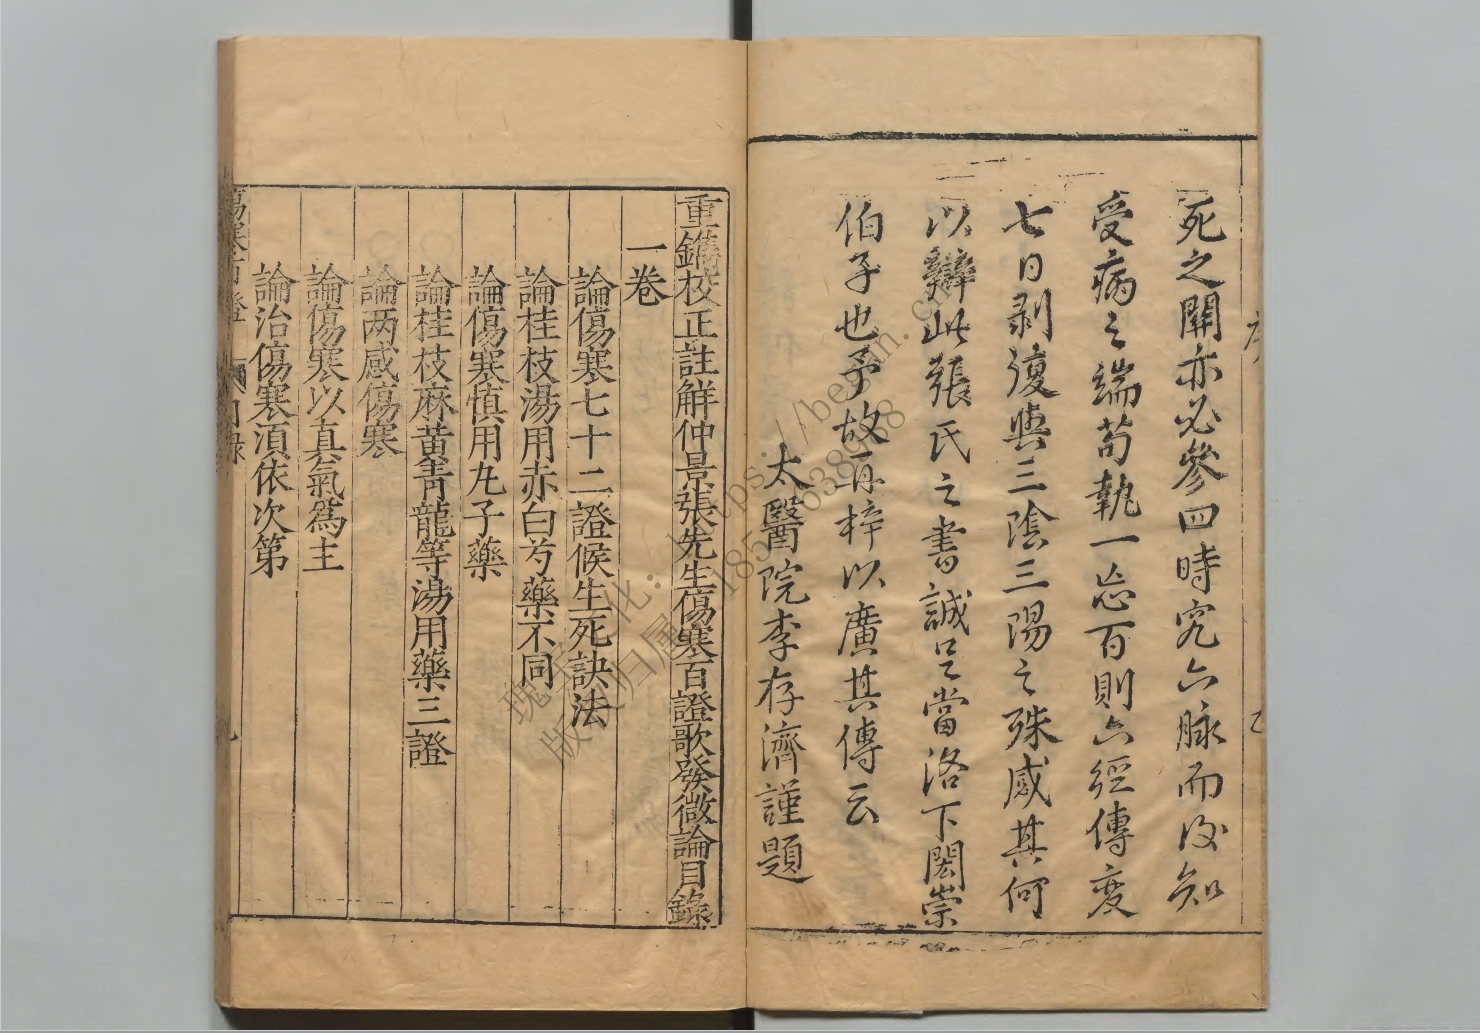 死之關亦必參四時究六脉而後知
受病之端苟執一忘百則六經傳變
七日剥復與三陰三陽之殊感其何
以辯此張氏之書誠足當洛下閎崇
伯子也予故再梓以廣其傳云
太醫院李存濟謹題
重鐫校正註解仲景張先生傷寒百證歌發微論目錄
一卷
論傷寒七十二證候生死訣法
論桂枝湯用赤白芍藥不同
論傷寒慎用圥子藥
論桂枝麻黃青龍等湯用藥三證
論两感傷寒
論傷寒以真氣為主
論治傷寒須依次第
傷寒百證 目錄